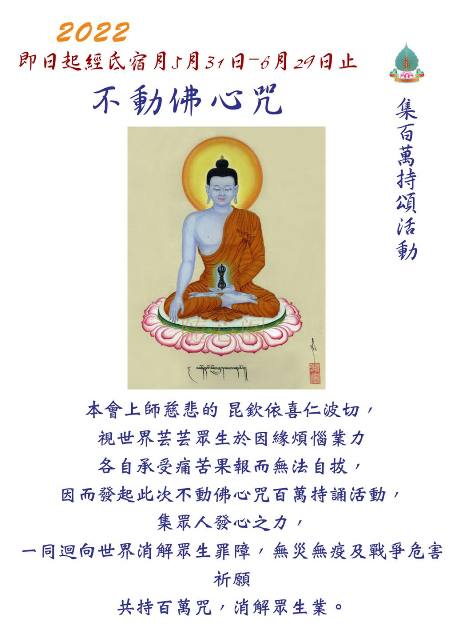 2022
即日起經氐宿月5月31日-6月29日止
不動佛心咒
集百萬持頌活動
本會上師慈悲的 昆欽依喜仁波切，
視世界芸芸眾生於因緣煩惱業力
各自承受痛苦果報而無法自拔，
因而發起此次不動佛心咒百萬持誦活動，
集眾人發心之力，
一同迴向世界消解眾生罪障，無災無疫及戰爭危害
祈願
共持百萬咒，消解眾生業。